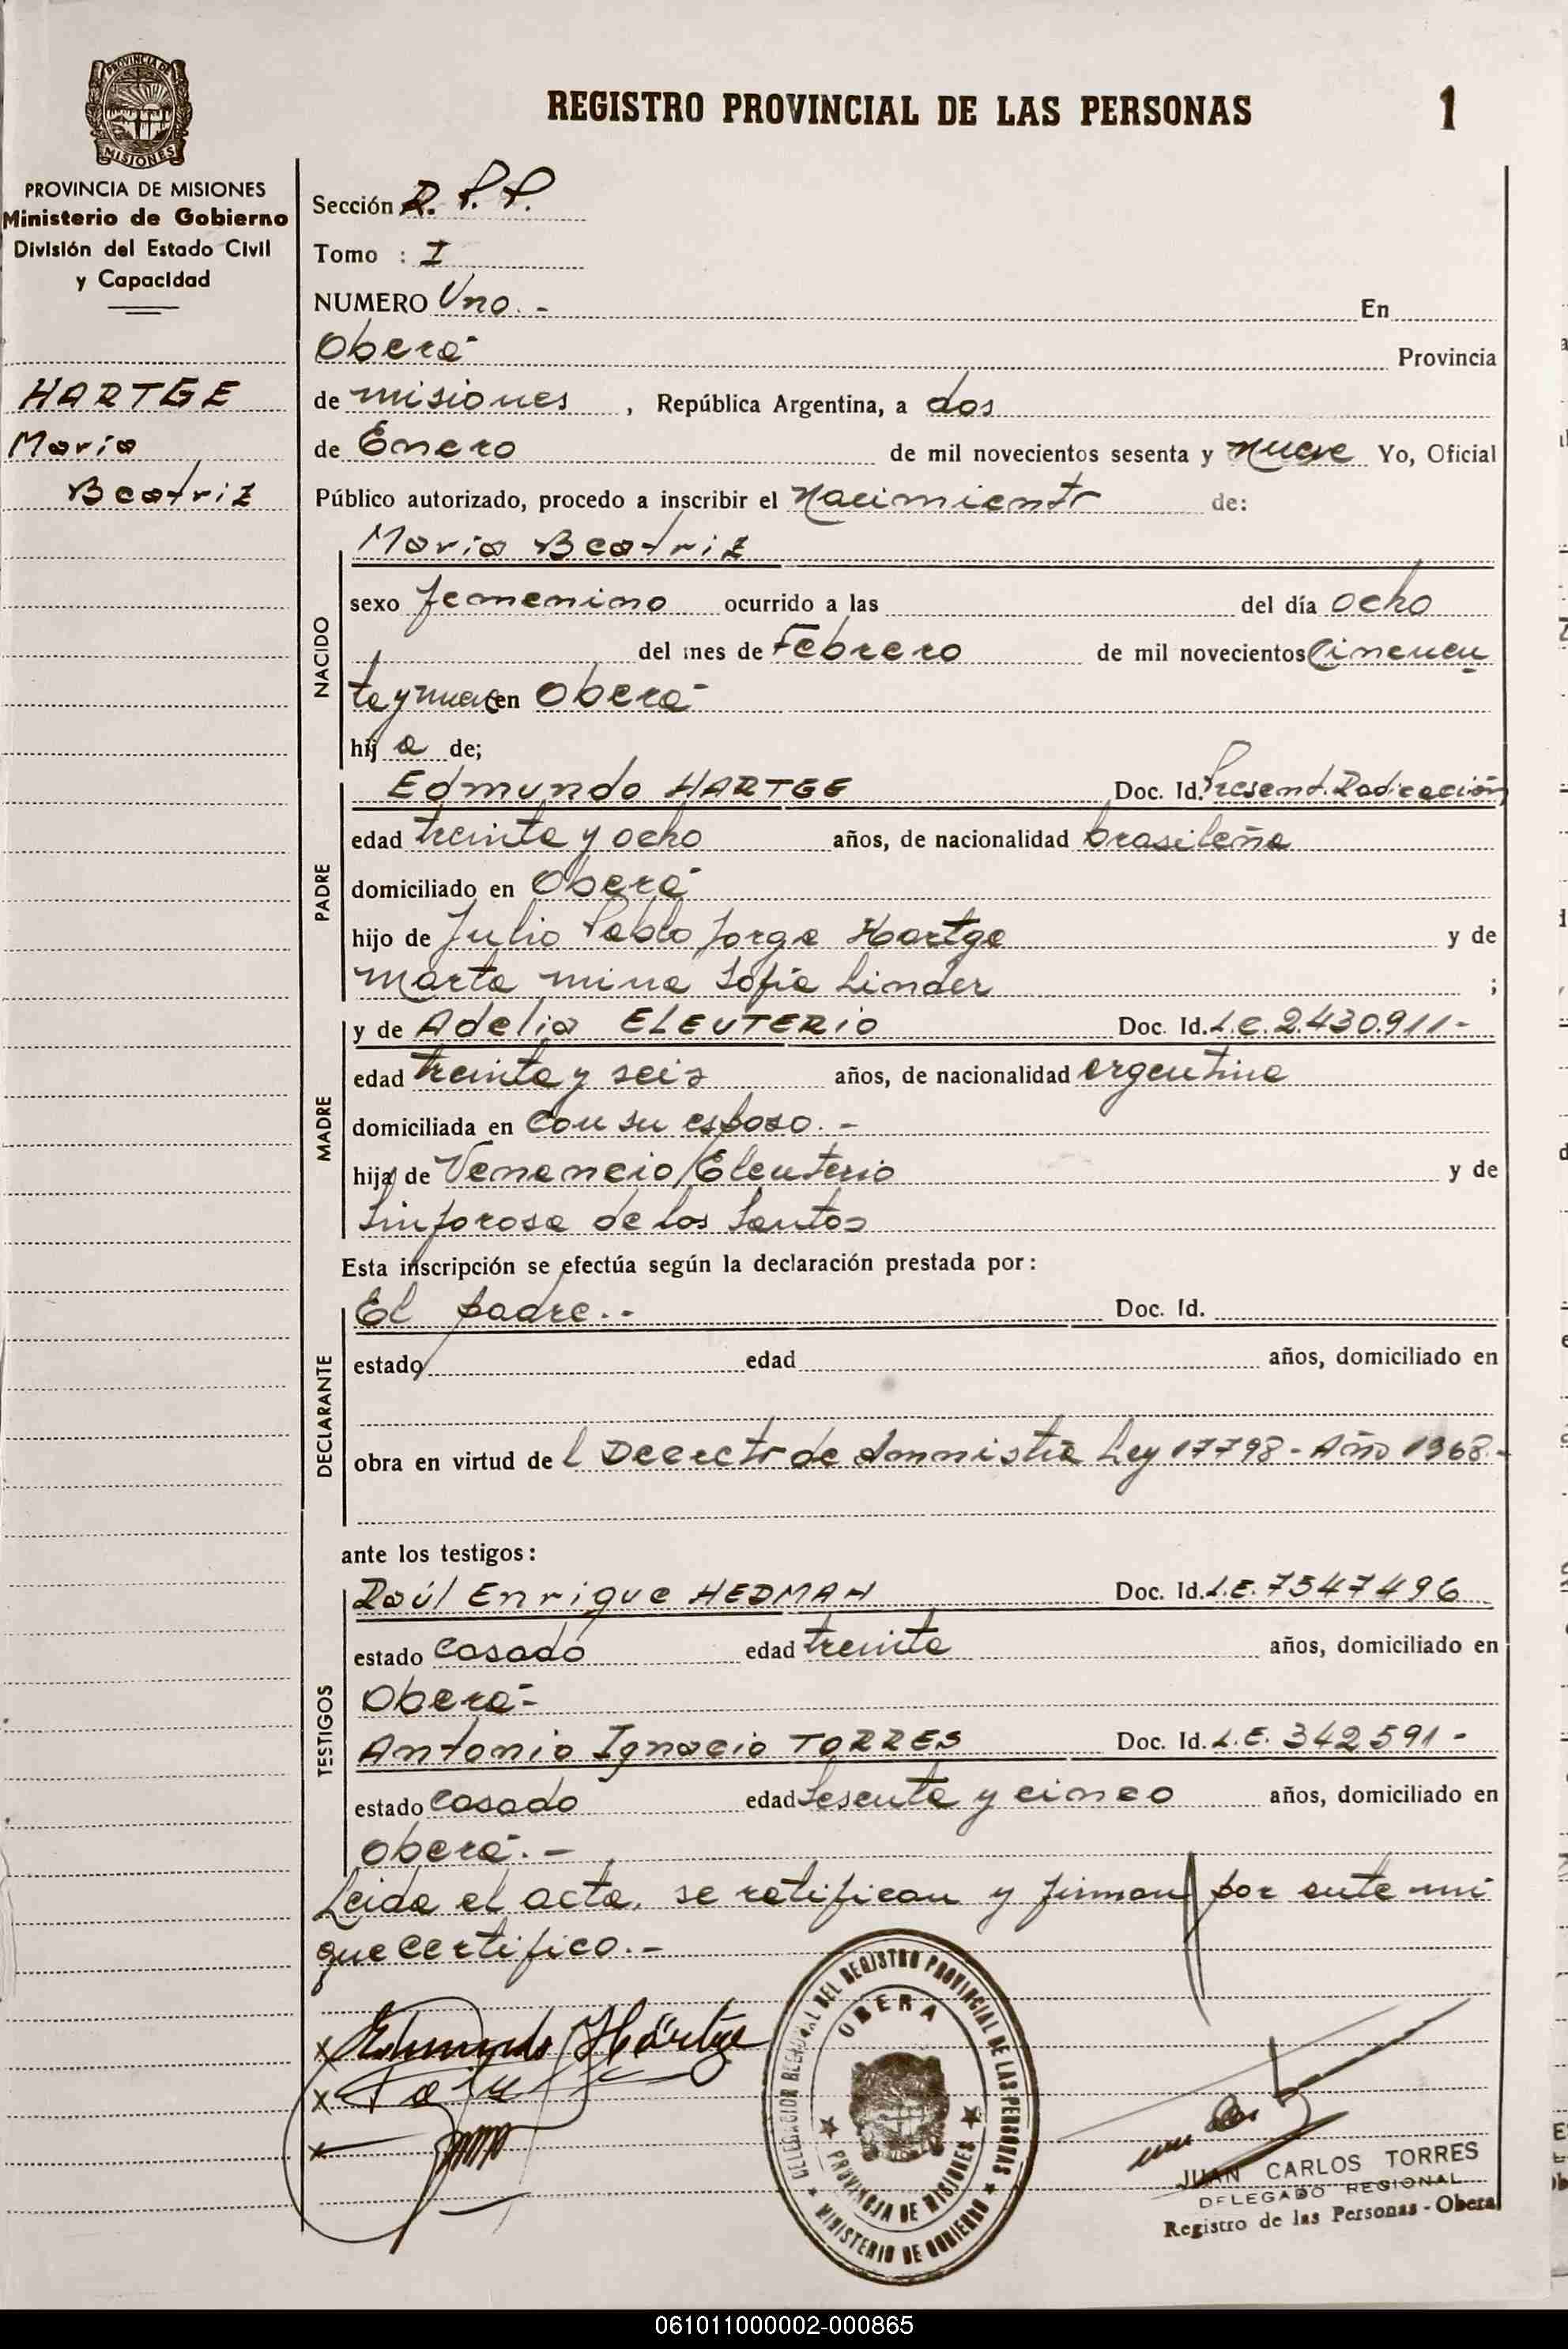 PROVINCIA DE
MISIONES
PROVINCIA DE MISIONES
Ministerio de Gobierno
División del Estado Civil
y Capacidad
HARTGE
María
Beatriz
REGISTRO PROVINCIAL DE LAS PERSONAS 1
Sección R. P. P.
Tomo : I
NUMERO Uno. - En
Oberá Provincia
de misiones, República Argentina, a dos
de Enero de mil novecientos sesenta y nueve Yo, Oficial
Público autorizado, procedo a inscribir el Nacimiento de:
María Beatriz
NACIDO
sexo femenino ocurrido a las del día ocho
del mes de Febrero de mil novecientos Cincuen
ta y nueve en Oberá
hij a de;
PADRE
Edmundo HARTGE Doc. Id. Present. Radicación
edad treinta y ocho años, de nacionalidad brasileña
domiciliado en Oberá
hijo de Julio Pablo Jorge Hartge y de
Marta Mina Sofía Linder ;
MADRE
y de Adelia ELEUTERIO Doc. Id. L.C. 2.430.911-
edad treinta y seis años, de nacionalidad argentina
domiciliada en Con su esposo. -
hija de Venancio Eleuterio y de
Sinforosa de los Santos
Esta inscripción se efectúa según la declaración prestada por:
DECLARANTE
El padre. - Doc. Id.
estado edad años, domiciliado en
obra en virtud de l Decreto de Amnistía Ley 17798 - Año 1968.-
ante los testigos:
TESTIGOS
Raúl Enrique HEDMAN Doc. Id. L.E. 7547496
estado Casado edad treinta años, domiciliado en
Oberá-
Antonio Ignacio TORRES Doc. Id. L.E. 342591-
estado Casado edad Sesenta y cinco años, domiciliado en
Oberá. -
Leida el acta, se ratifican y firman por ante mí
que certifico. -
x Edmundo Härtge
x
x
DELEGACION REGIONAL DEL REGISTRO PROVINCIAL DE LAS PERSONAS
OBERA
PROVINCIA DE MISIONES
MINISTERIO DE GOBIERNO
JUAN CARLOS TORRES
DELEGADO REGIONAL
Registro de las Personas - Obera
061011000002-000865